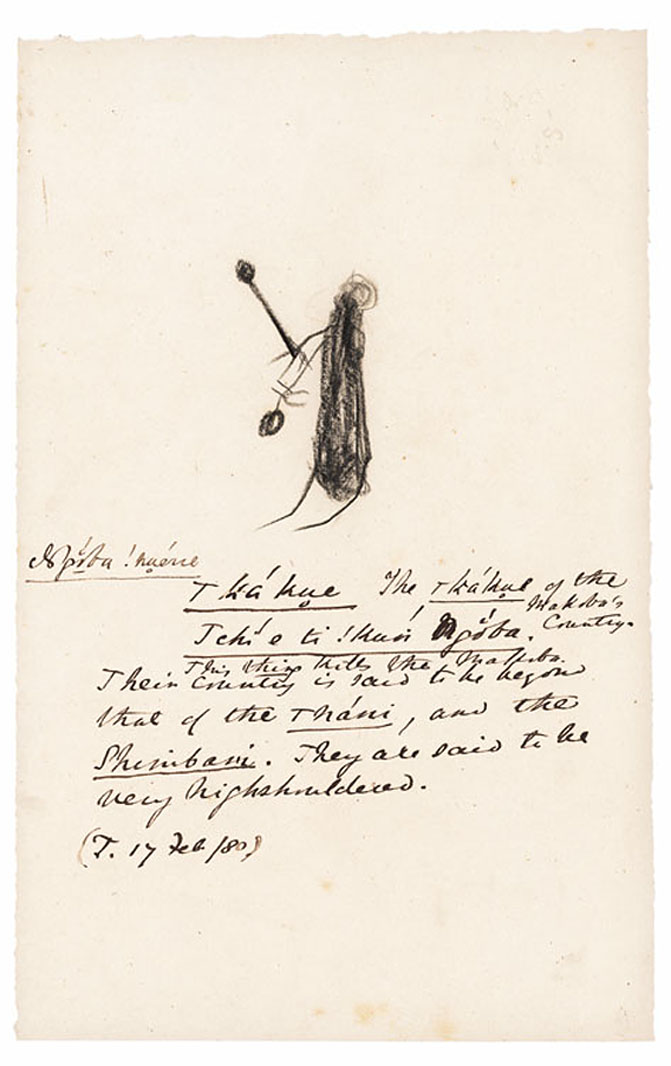 Ngǒba !nuérre
Tkákue The Tkákue of the
Makoba's
Country.
Tchí e ti !kuń Ngǒba.
This thing kills the Makoba.
Their country is said to be beyond
that of the Tháni, and the
Shimbani. They are said to be
very highshouldered.
(T. 17 Feb/80)